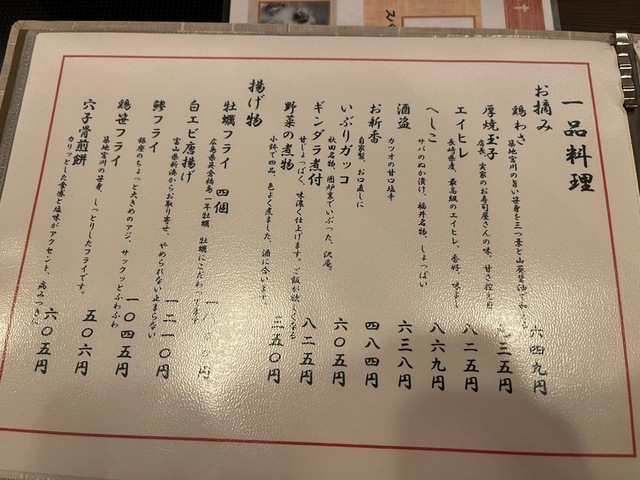 一品料理
お摘み
鶏わさ
築地宮川の旨い笹身を三つ葉と山葵醤油で
六四九円
厚焼玉子
店長、実家のお寿司屋さんの味、甘さ控え目
三五円
エイヒレ
長崎県産、最高級のエイヒレ、香好、味よし
八二五円
へしこ
サバのぬか漬け、福井名物、しょっぱい
八六九円
酒盗
カツオの甘口塩辛
六三八円
お新香
自家製、お口直しに
四八四円
いぶりガッコ
秋田名物、囲炉裏でいぶった、沢庵。
六〇五円
ギンダラ煮付
甘じょっぱく、味濃く仕上げます。ご飯が欲しくなる
八二五円
野菜の煮物
小鉢で四品、色よく煮ました、酒に合います。
三五〇円
揚げ物
牡蠣フライ 四個
広島県英倉橋島 一年牡蠣 牡蠣にこだわってます
円
白エビ唐揚げ
富山県新湊からお取り寄せ、やめられない止まらない
一二一〇円
鯵フライ
銀座のちょっと大きめのアジ、サックッとふわふわ
一〇四五円
鶏笹フライ
築地宮川の笹身、しっとりしたフライです。
五〇六円
穴子骨煎餅
カリッとした食感と塩味がアクセント、病みつき
六〇五円